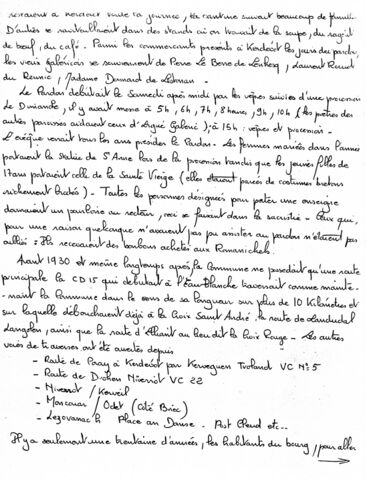 restaient à Kerdévot toute la journée, la cantine servait beaucoup de
D'autres se ravitaillaient dans des stands où on trouvait de la soupe, du ragoût
de bœuf, du café. Parmi les commerçants présents à Kerdévot les jours du pardon,
les vieux Gabéricois se souviennent de Pierre Le Berre de Laurent
Madame
Le Pardon débutait le Samedi après midi par les vêpres suivies d'une procession
Le Dimanche, il y avait messe à 5h, 6h, 7h, 8 heures, 9h, 10h (les prêtres des
autres paroisses aidaient ceux d'Ergué Gabéric), à 15h : vêpres et procession -
L'évêque venait tous les ans présider le Pardon. Les femmes mariées dans l'année
portaient la statue de St Anne lors de la procession tandis que les jeunes filles de
17 ans portaient celle de la Sainte Vierge (elles étaient parées de costumes bretons
richement brodés) - Toutes les personnes désignées pour porter une enseigne
donnaient un pourboire au recteur, ceci se faisant dans la sacristie - Ceux qui,
pour une raison quelconque n'avaient pas pu assister au pardon n'étaient pas
oubliés : Ils recevaient des bonbons achetés aux Romanichels.
Avant 1930 et même longtemps après, la Commune ne possédait qu'une route
principale la CD 15 qui débutait à l'Eau Blanche traversait comme mainte-
- nant la Commune dans le sens de sa longueur sur plus de 10 Kilomètres et
sur laquelle débouchaient déjà à la Croix Saint André la route de Landudal
Langolen, ainsi que la route d'Elliant au lieu dit la Croix Rouge - Les autres
voies de traverses ont été ouvertes depuis
- Route de à Kerdévot par Kerveguen VC N° 5
- Route de VC 22
- /
- / Odet (Cité Briec)
- Lezouanac'h Place an Danse. Pont Cleud etc...
Il y a seulement une trentaine d'années, les habitants du bourg, pour aller